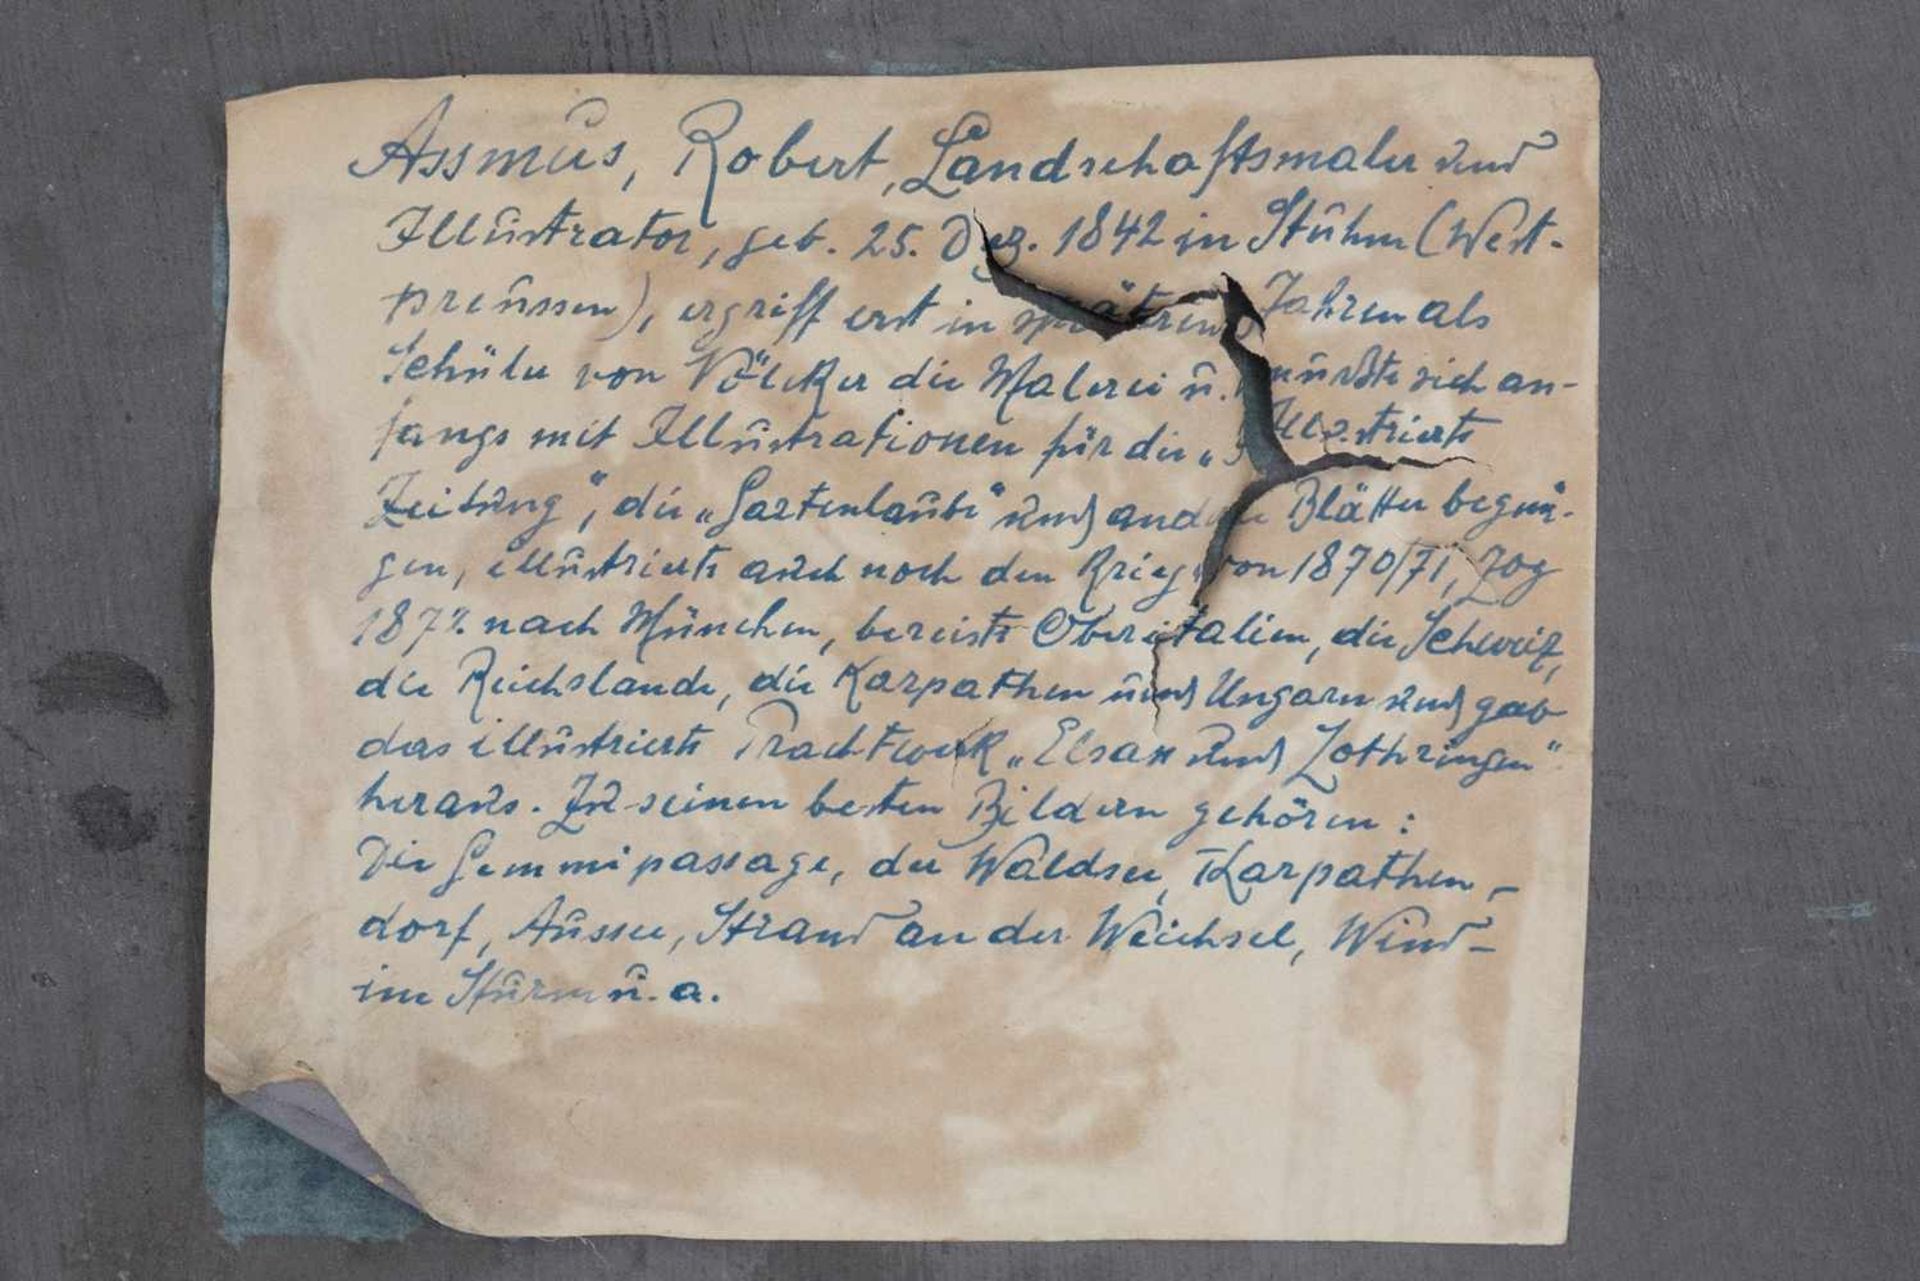 Assmus, Robert, Landschaftsmaler und
Illustrator, geb. 25. Dez. 1842 in Stuhm (West-
preussen), ergriff erst in späteren Jahren als
Schüler von Völcker die Malerei u. musste sich an-
fangs mit Illustrationen für die „Illustrierte
Zeitung“, die „Gartenlaube“ und andere Blätter begnü-
gen, illustrierte auch noch den Krieg von 1870/71, zog
nach München, bereiste Oberitalien, die Schweiz,
die Reichslande, die Karpathen und Ungarn und gab
das illustrierte Prachtwerk „Elsass und Lothringen“
heraus. Zu seinen besten Bildern gehören:
Die Gemmipassage, der Waldsee, Karpathen-
dorf, Aussee, Strand an der Weichsel, Wind-
im Sturm u. a.